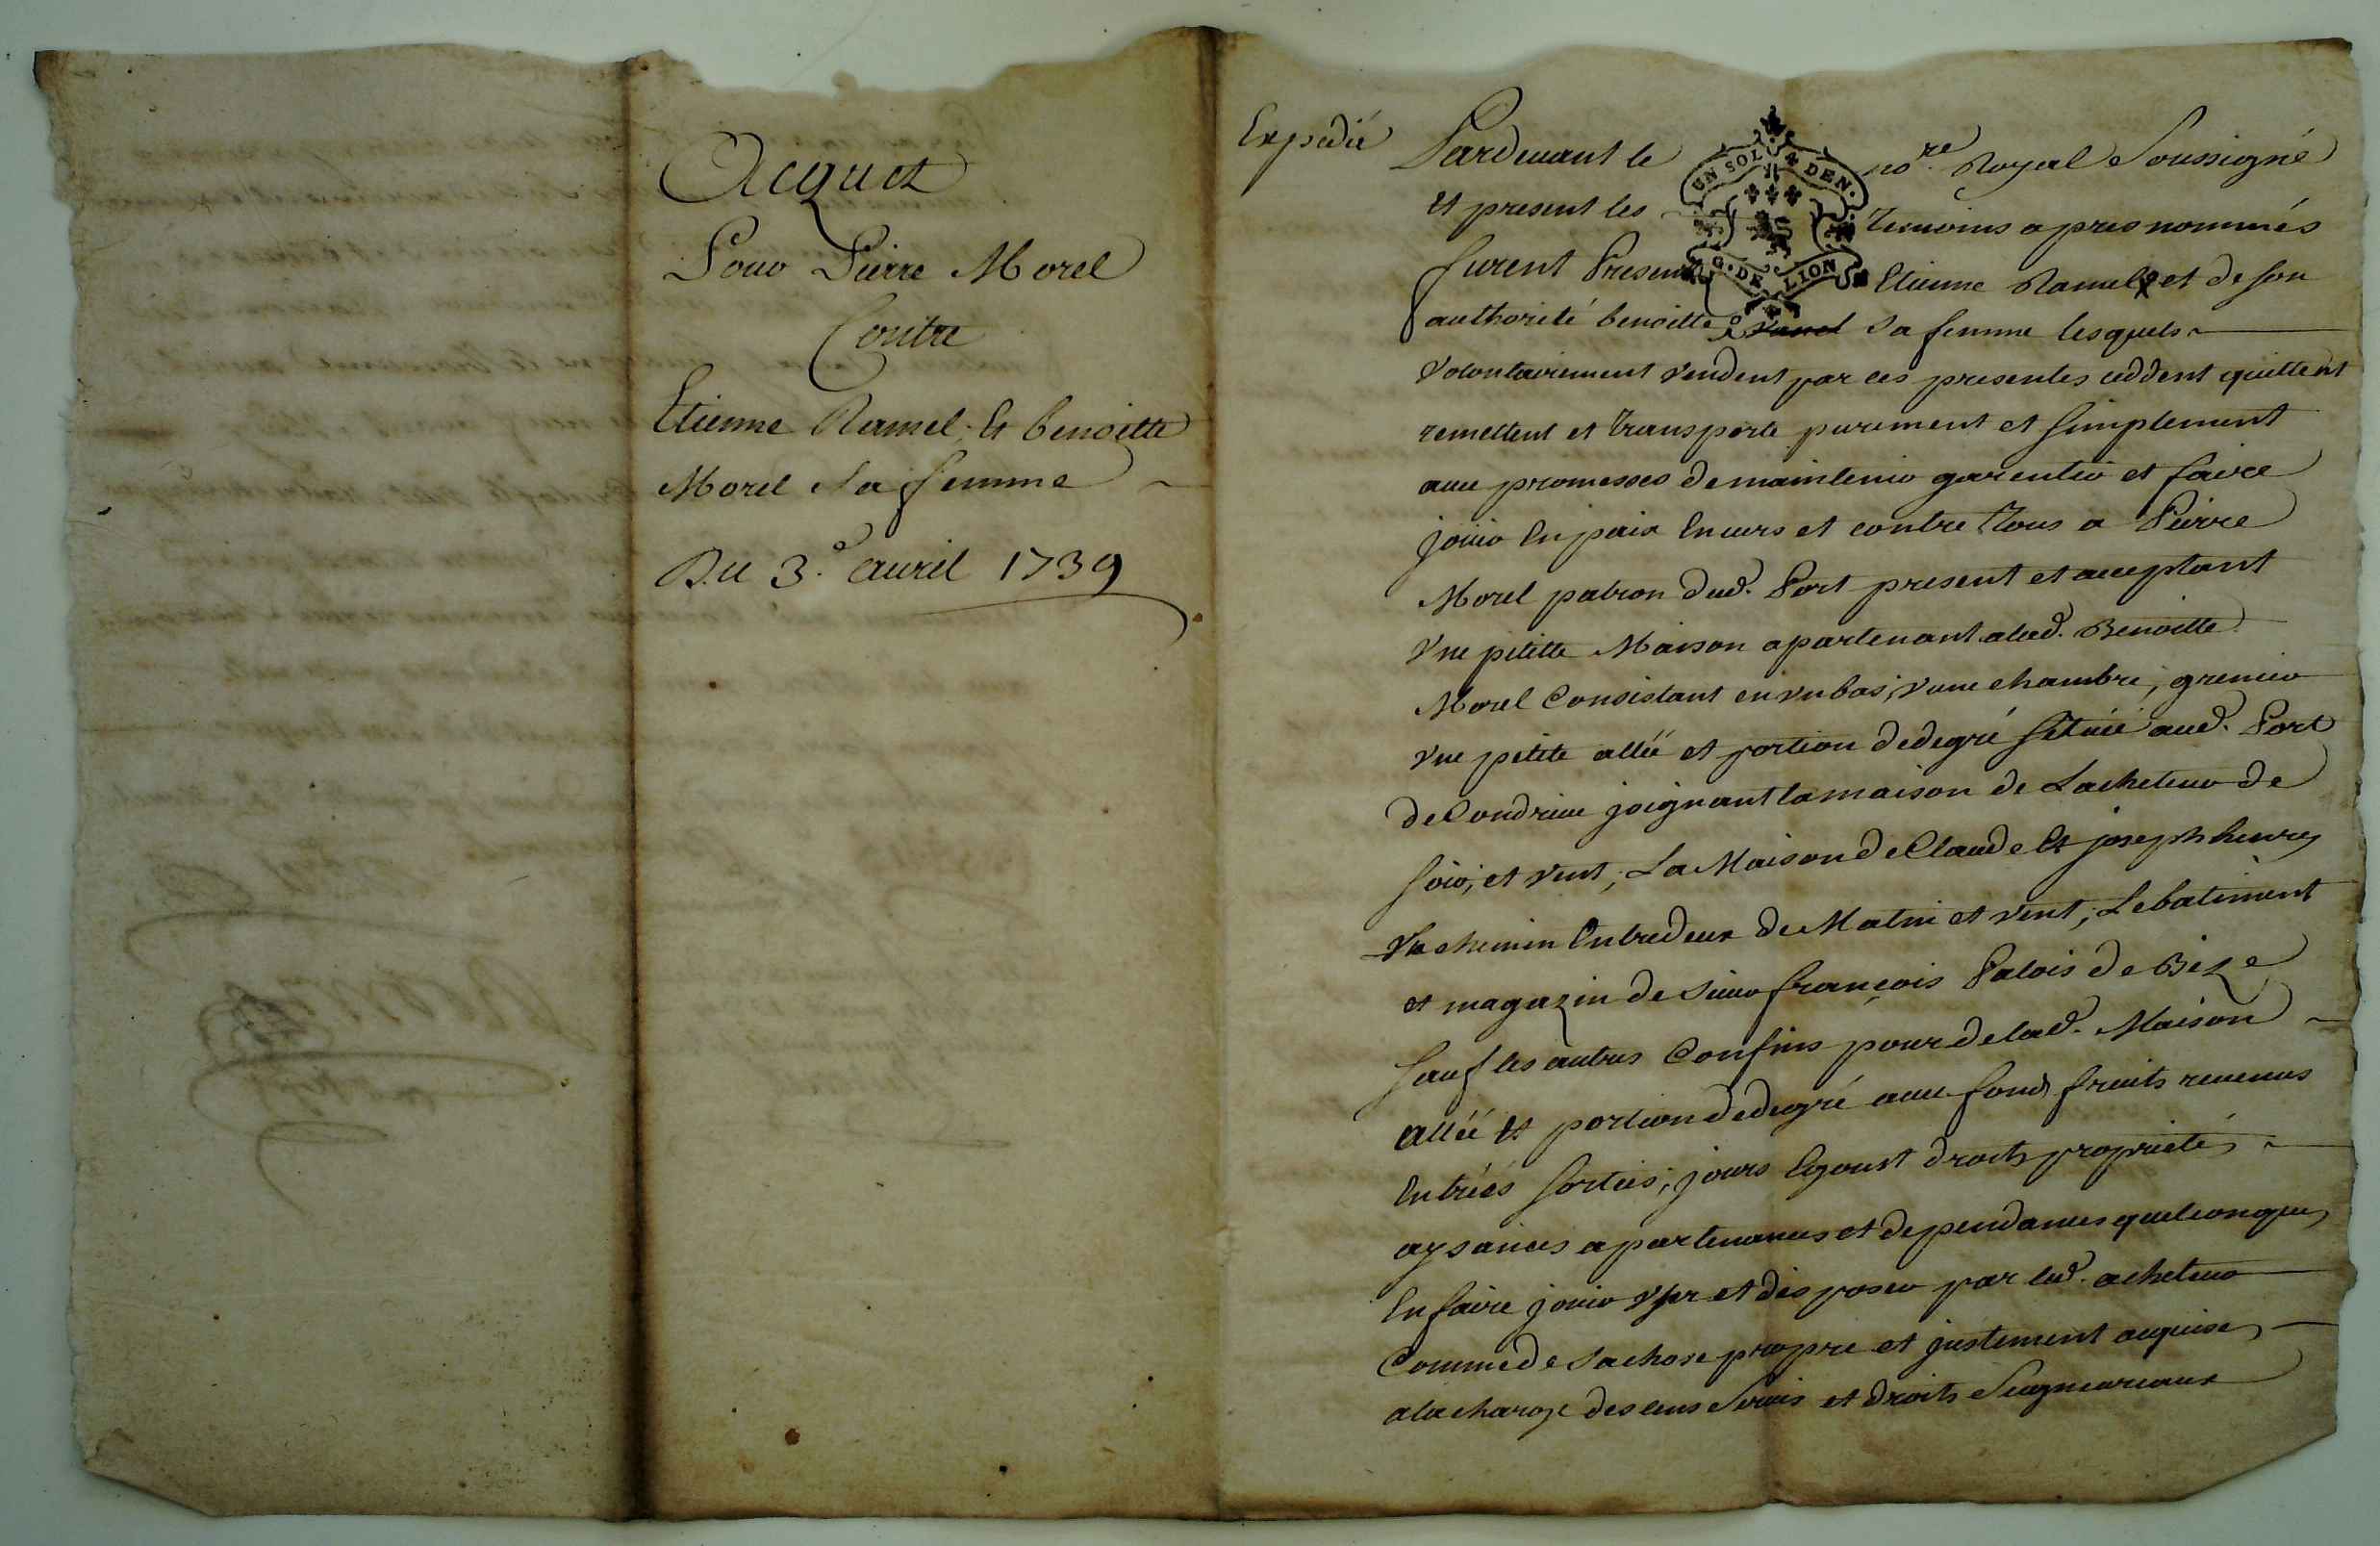 Acquet
Pour Pierre Morel
Contre
Etienne Ramel, Et benoitte
Morel Sa femme
Du 3.e auril 1739
Expedié
UN SOL 4 DEN.
G. DE LION
Pardeuant le nore. Royal Soussigné
et present les Temoins apres nommés
furent Presents Etienne Ramel et de son
authorité benoitte sa femme lesquels
volontairement vendent par ces presentes ceddent quittent
remettent et transporte purement et simplement
auec promesses de maintenir garentir et faire
jouir en paix enuers et contre tous a Pierre
Morel patron dud. Port present et acceptant
Vne petitte Maison apartenant alad. Benoitte
Morel Consistant en vn bas, vune chambre, grenier
vne petite allée et portion de degré sittuée aud. Port
de Condrieu joignant la maison de Lacheteur de
soir, et vent, La Maison de Claude Et joseph henry
Vn chemin Entredeux de Matin et vent, Le batiment
et magazin de sieur françois Palois de Bize
sauf les autres Confins pour de lad. Maison
allée et portion de degré auec fond fruits reuenus
Entrées sorties, jours Egoust droits proprieté,
aysances apartenances et dependances quelconques,
En faire jouir vser et disposer par led. acheteur
Comme de sa chose propre et justement acquise,
ala charge des cens Seruis et droits Seigneuriaux